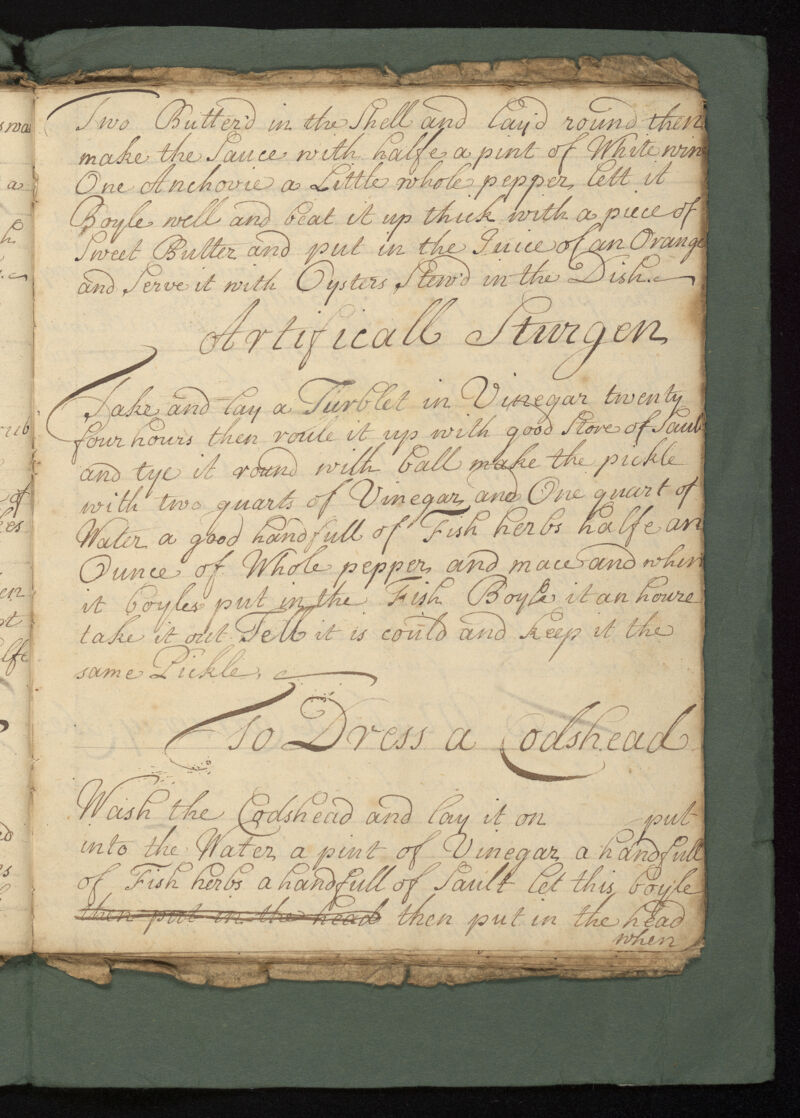 Two Butter'd in the Shell and lay'd round then
make the Sauce with halfe a pint of White wine
One Anchovie a Little whole pepper lett it
Boyle well and beat it up thick with a piece of
Sweet Butter and put in the Juice of an Orange
and Serve it with Oysters Stew'd in the Dish.
Artificall Sturgen
Take and lay a Turblet in Vinegar twenty
four hours then roule it up with good Store of Sault
and tye it round with ball make the pickle
with two quarts of Vinegar and One quart of
Water a good handfull of Fish herbs halfe an
Ounce of Whole pepper and mace and when
it boyles put in the Fish Boyle it an houre
take it out Tell it is could and keep it the
same Pickle
To Dress a Codshead
Wash the Codshead and lay it on put
into the Water a pint of Vinegar a handfull
of Fish herbs a handfull of Sault let this boyle
then put in the head then put in the head
when